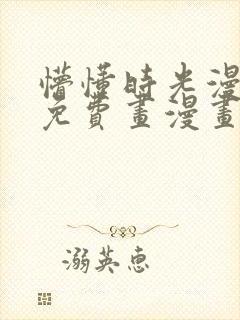 懵懂時光漫
免費畫漫畫
溺英惠